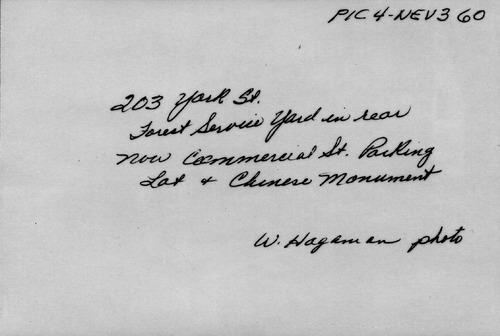 PIC 4-NEV3 60
203 York St.
Forest Service Yard in rear
Now Commercial St. Parking
Lot + Chinese Monument
W. Hagaman photo